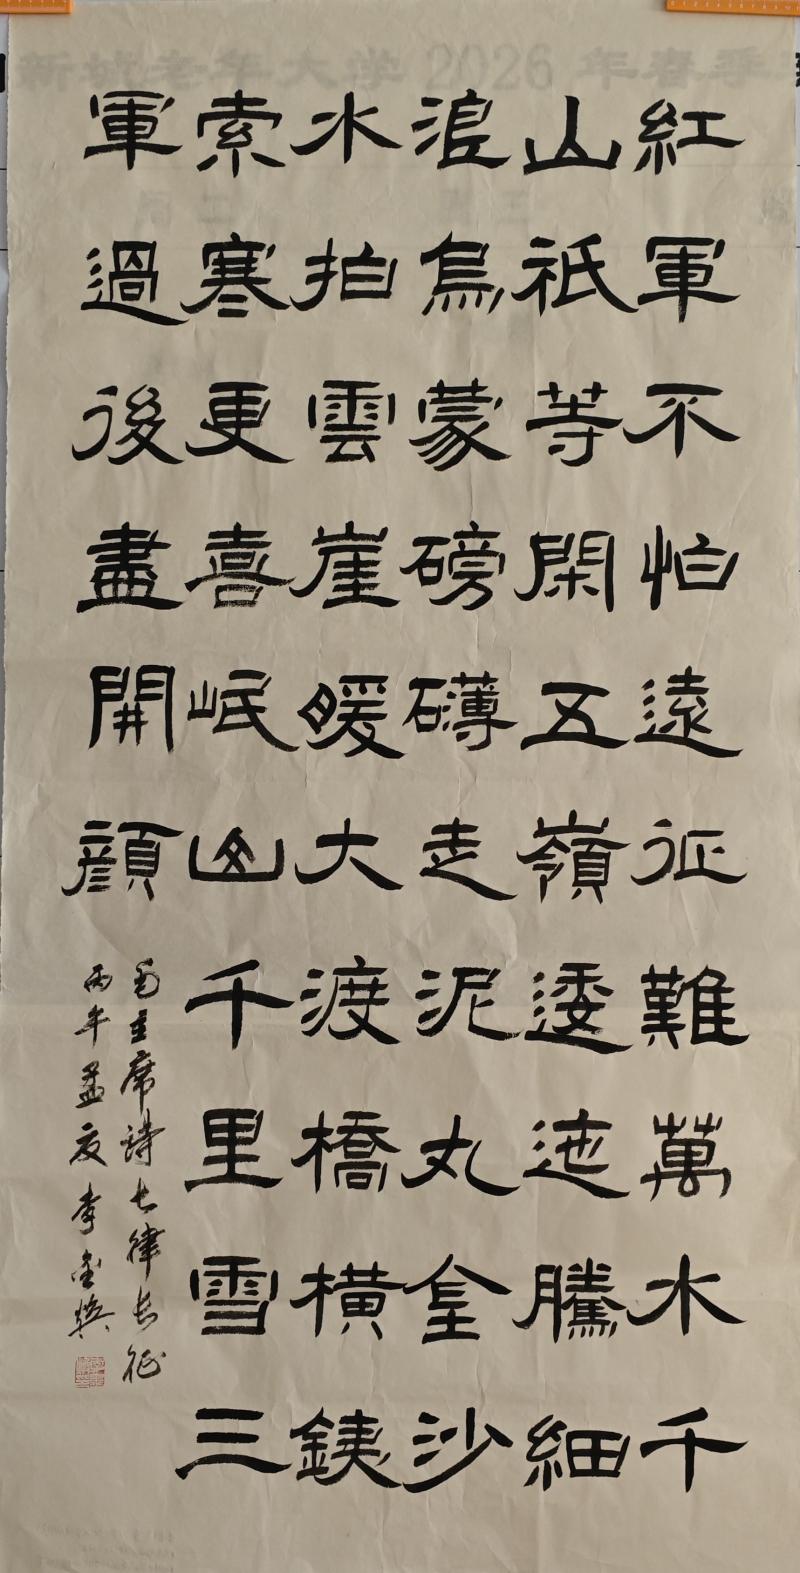 新城老年大学2026年春季
紅軍不怕遠征難萬水千
山祇等閑五嶺逶迤騰細
浪烏蒙磅礴走泥丸金沙
水拍雲崖暖大渡橋橫銕
索寒更喜岷山千里雪三
軍過後盡開顏
毛主席詩七律長征
丙午孟夏李